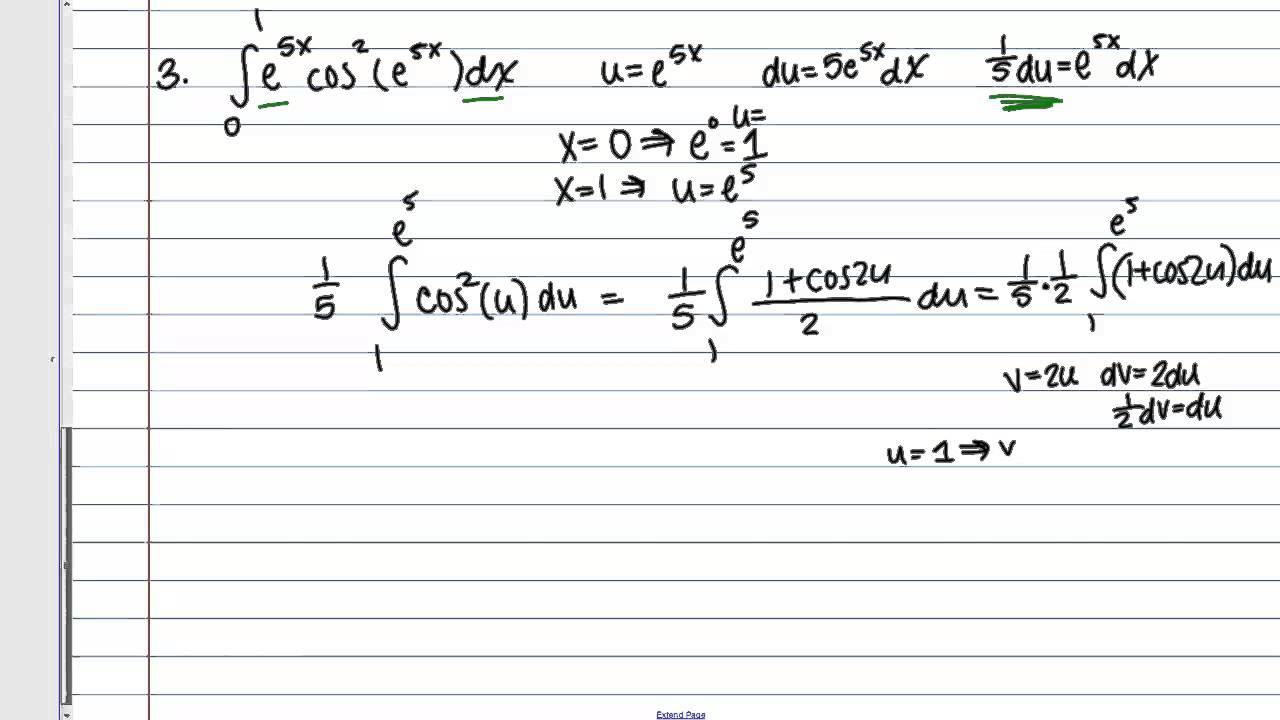 3. ∫₀¹ e^{5x} cos²(e^{5x}) dx   u = e^{5x}   du = 5e^{5x} dx   1/5 du = e^{5x} dx
x = 0 ⇒ e⁰ = 1   u =
x = 1 ⇒ u = e⁵
1/5 ∫₁^{e⁵} cos²(u) du = 1/5 ∫₁^{e⁵} (1 + cos2u)/2 du = 1/5 · 1/2 ∫₁^{e⁵} (1 + cos2u) du
v = 2u   dv = 2du
1/2 dv = du
u = 1 ⇒ v
Extend Page